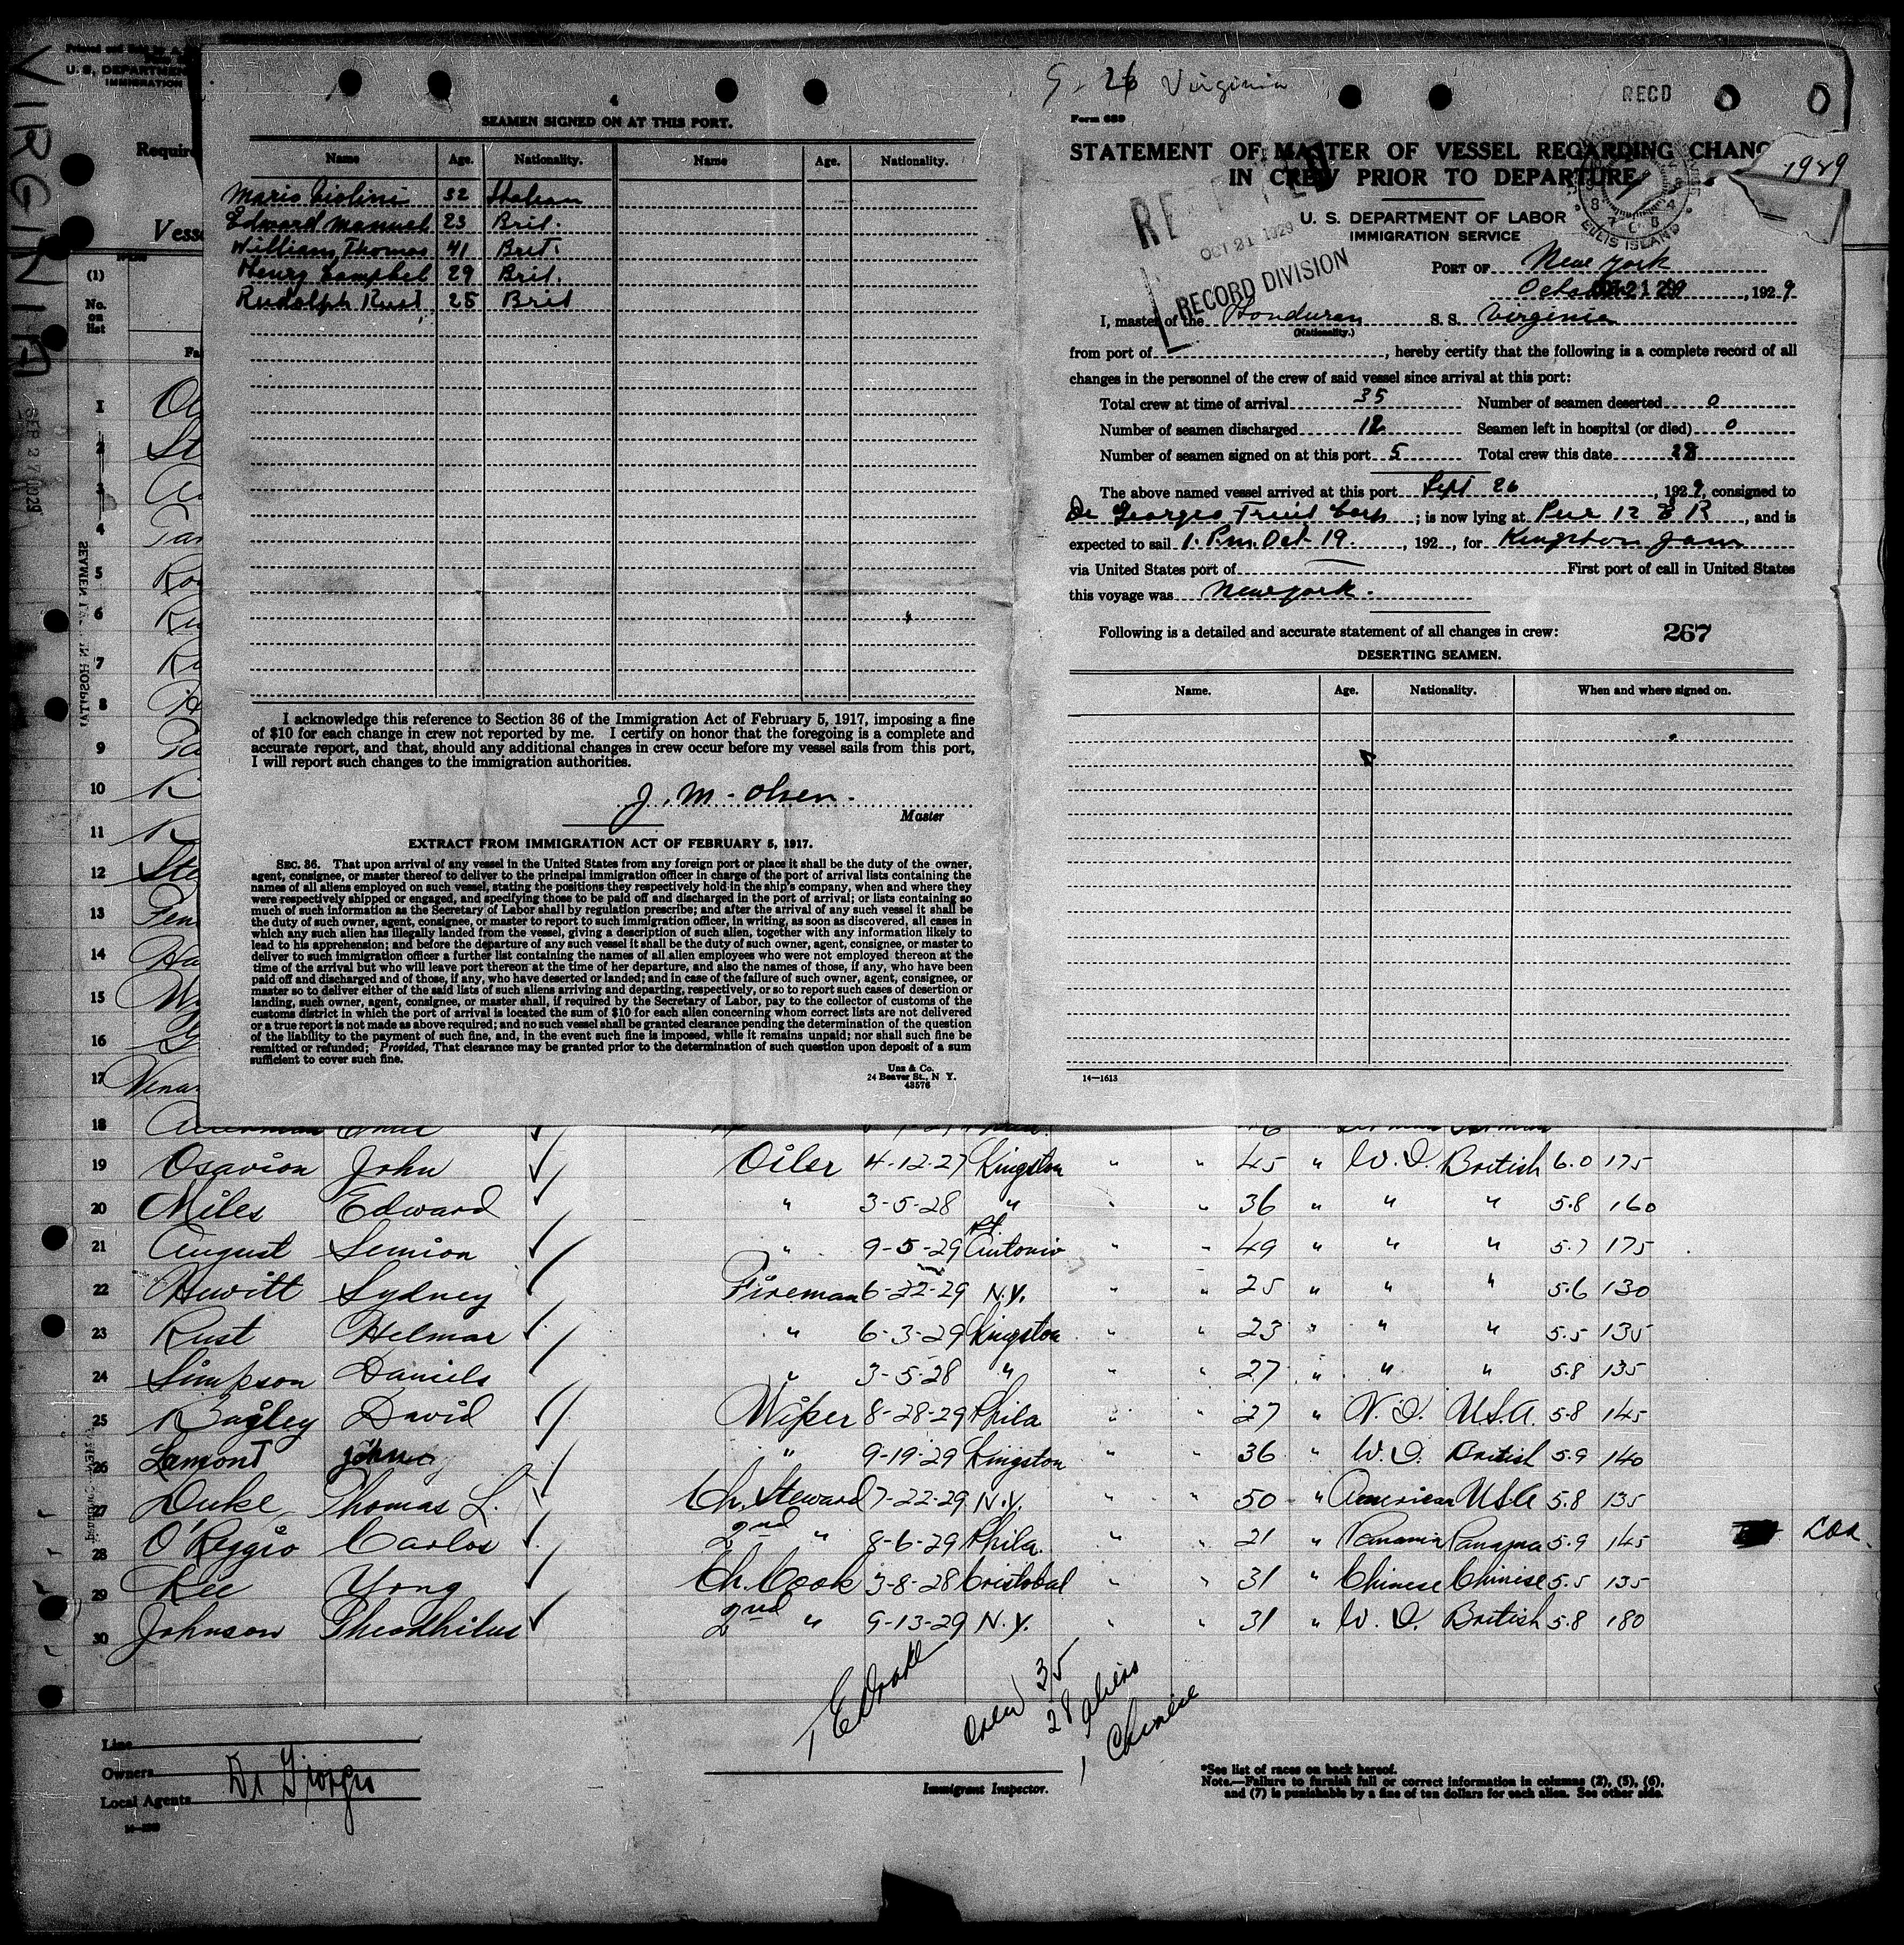 VIRGINIA
U. S. DEPARTMEN
IMMIGRATION
Require
Vess
(1)
No.
on
list
4
SEAMEN SIGNED ON AT THIS PORT.
Name Age. Nationality. Name Age. Nationality.
Mario Giolini 32 Italian
Edward Manuel 23 Brit.
William Thomas 41 Brit.
Henry Campbel 29 Brit.
Rudolph Rust 25 Brit
I acknowledge this reference to Section 36 of the Immigration Act of February 5, 1917, imposing a fine
of $10 for each change in crew not reported by me. I certify on honor that the foregoing is a complete and
accurate report, and that, should any additional changes in crew occur before my vessel sails from this port,
I will report such changes to the immigration authorities.
J. M. Olsen.
Master
EXTRACT FROM IMMIGRATION ACT OF FEBRUARY 5, 1917.
SEC. 36. That upon arrival of any vessel in the United States from any foreign port or place it shall be the duty of the owner,
agent, consignee, or master thereof to deliver to the principal immigration officer in charge of the port of arrival lists containing the
names of all aliens employed on such vessel, stating the positions they respectively hold in the ship's company, when and where they
were respectively shipped or engaged, and specifying those to be paid off and discharged in the port of arrival; or lists containing so
much of such information as the Secretary of Labor shall by regulation prescribe; and after the arrival of any such vessel it shall be
the duty of such owner, agent, consignee, or master to report to such immigration officer, in writing, as soon as discovered, all cases in
which any such alien has illegally landed from the vessel, giving a description of such alien, together with any information likely to
lead to his apprehension; and before the departure of any such vessel it shall be the duty of such owner, agent, consignee, or master to
deliver to such immigration officer a further list containing the names of all alien employees who were not employed thereon at the
time of the arrival but who will leave port thereon at the time of her departure, and also the names of those, if any, who have been
paid off and discharged and of those, if any, who have deserted or landed; and in case of the failure of such owner, agent, consignee, or
master so to deliver either of the said lists of such aliens arriving and departing, respectively, or so to report such cases of desertion or
landing, such owner, agent, consignee, or master shall, if required by the Secretary of Labor, pay to the collector of customs of the
customs district in which the port of arrival is located the sum of $10 for each alien concerning whom correct lists are not delivered
or a true report is not made as above required; and no such vessel shall be granted clearance pending the determination of the question
of the liability to the payment of such fine, and, in the event such fine is imposed, while it remains unpaid; nor shall such fine be
remitted or refunded; Provided, That clearance may be granted prior to the determination of such question upon deposit of a sum
sufficient to cover such fine.
Unz & Co.
24 Beaver St., N Y.
43576
9-26 Virginia
RECD
Form 689
STATEMENT OF MASTER OF VESSEL REGARDING CHANG
IN CREW PRIOR TO DEPARTURE
1929
ELLIS ISLAND
OCT 21 1929
RECORD DIVISION
U. S. DEPARTMENT OF LABOR
IMMIGRATION SERVICE
PORT OF New York
OCT 21 29, 1929
I, master of the Honduran S. S. Virginia
(Nationality.)
from port of , hereby certify that the following is a complete record of all
changes in the personnel of the crew of said vessel since arrival at this port:
Total crew at time of arrival 35 Number of seamen deserted 0
Number of seamen discharged 12 Seamen left in hospital (or died) 0
Number of seamen signed on at this port 5 Total crew this date 28
The above named vessel arrived at this port Sept 26, 1929, consigned to
Di Georgio Fruit Corp; is now lying at Pier 12 E R, and is
expected to sail 1. P.m. Oct. 19., 192 , for Kingston Jam
via United States port of First port of call in United States
this voyage was New york.
Following is a detailed and accurate statement of all changes in crew: 267
DESERTING SEAMEN.
Name. Age. Nationality. When and where signed on.
14—1613
1
2
3
4
5
6
7
8
9
10
11
12
13
14
15
16
17
18
19 Osavion John Oiler 4-12-27 Kingston " " 45 " W. I. British 6.0 175
20 Miles Edward " 3-5-28 " " " 36 " " " 5.8 160
21 August Simion " 9-5-29 Pt Antonio " " 49 " " " 5.7 175
22 Hewitt Sydney Fireman 6-22-29 N.Y. " " 25 " " " 5.6 130
23 Rust Helmar " 6-3-29 Kingston " " 23 " " " 5.5 135
24 Simpson Daniels " 3-5-28 " " " 27 " " " 5.8 135
25 Bagley David Wiper 8-28-29 Phila " " 27 " W. I. U.S.A. 5.8 145
26 Lamont John " 9-19-29 Kingston " " 36 " W. I. British 5.9 140
27 Duke Thomas L. Ch. Steward 7-22-29 N.Y. " " 50 " American USA 5.8 135
28 O'Reggio Carlos 2nd " 8-6-29 Phila. " " 21 " Panama Panama 5.9 145
29 Lee Yong Ch. Cook 3-8-28 Cristobal " " 31 " Chinese Chinese 5.5 135
30 Johnson Theothilus 2nd " 9-13-29 N.Y. " " 31 " W. I. British 5.8 180
Crew 35
28 Aliens
1 Chinese
Line
Owners Di Giorgio
Local Agents
Immigrant Inspector.
*See list of races on back hereof.
Note.—Failure to furnish full or correct information in columns (2), (5), (6),
and (7) is punishable by a fine of ten dollars for each alien. See other side.